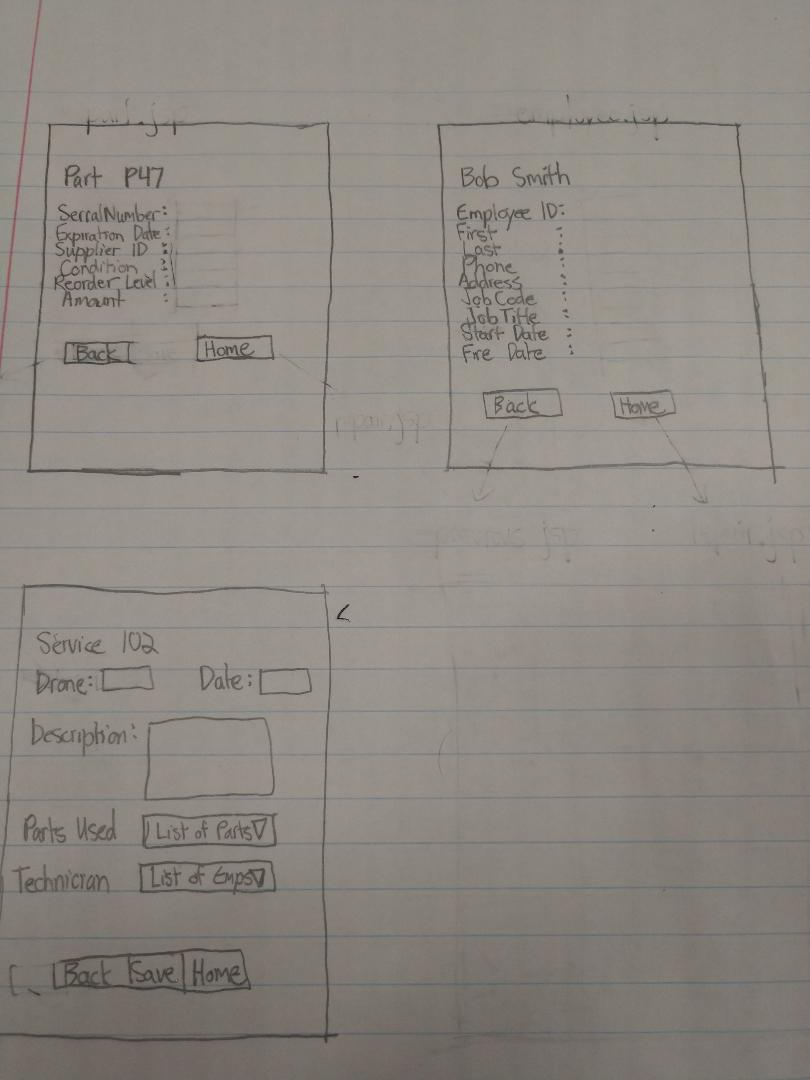 part.jsp
Part P47
Serial Number:
Expiration Date:
Supplier ID :
Condition :
Reorder Level :
Amount :
Back Home
employee.jsp
Bob Smith
Employee ID:
First :
Last :
Phone :
Address :
Job Code :
Job Title :
Start Date :
Fire Date :
Back Home
Service 102
Drone: Date:
Description:
Parts Used List of Parts
Technician List of Emps
Back Save Home